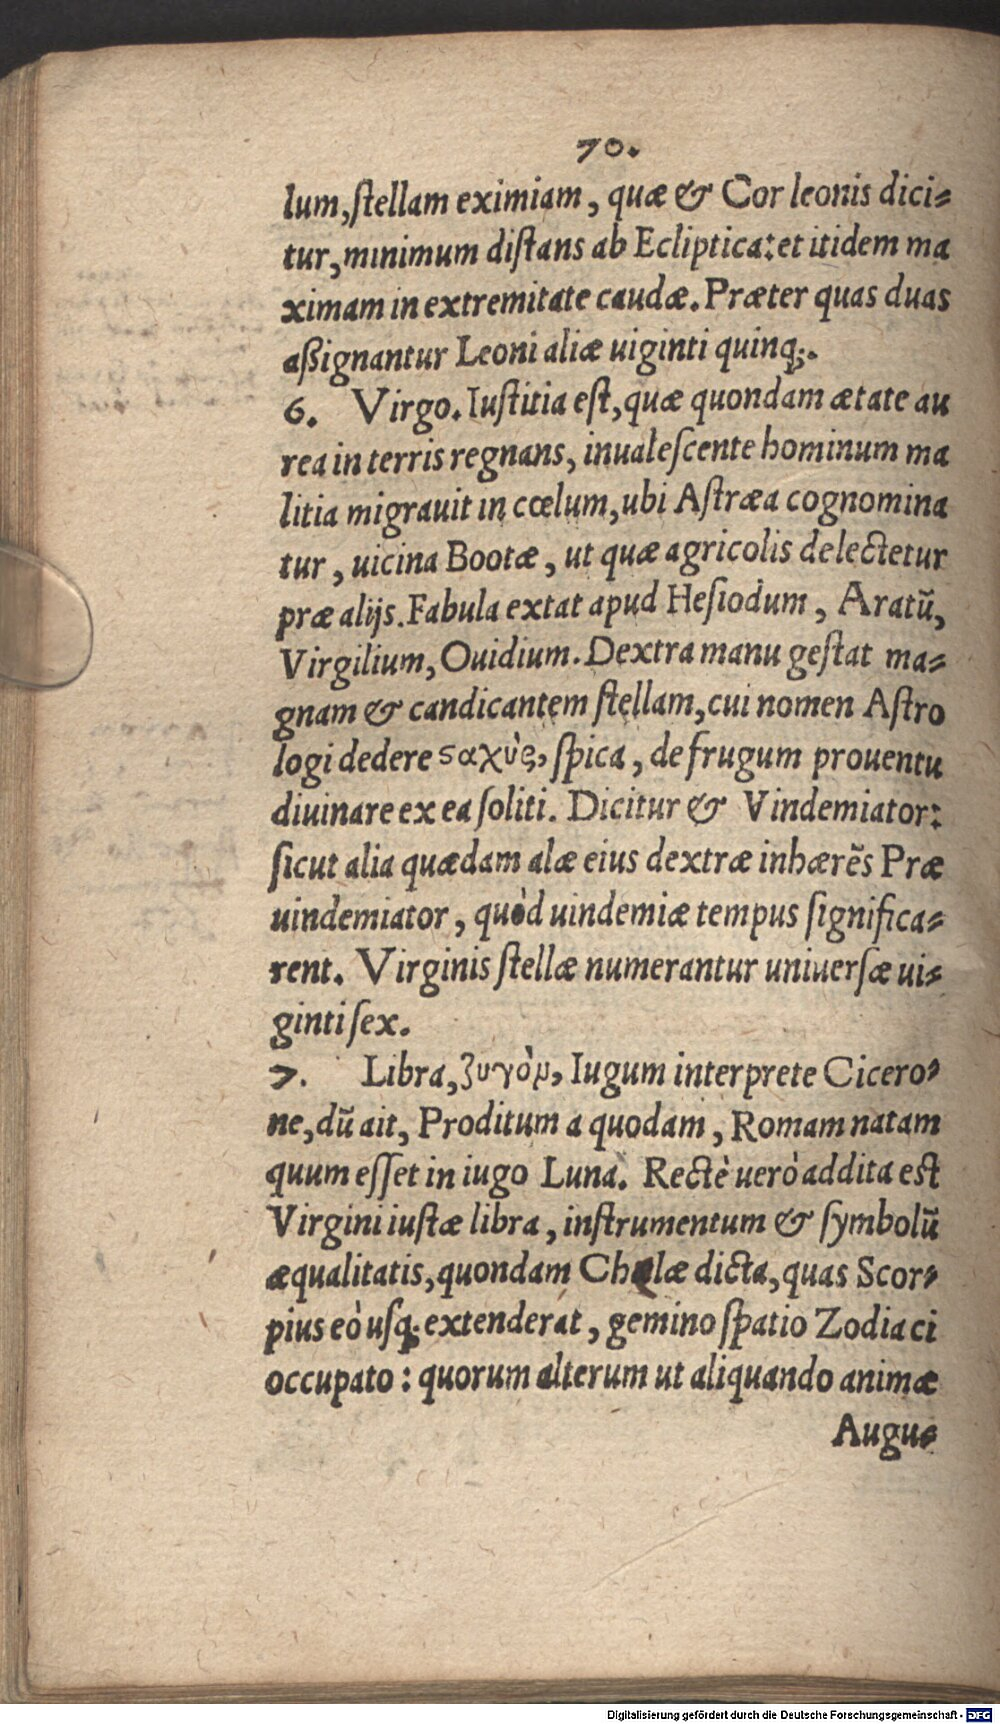 70.
lum, ſtellam eximiam, quæ & Cor leonis dici-
tur, minimum diſtans ab Ecliptica: et itidem ma
ximam in extremitate caudæ. Præter quas duas
aßignantur Leoni aliæ uiginti quinq;.
6. Virgo. Iuſtitia eſt, quæ quondam ætate au
rea in terris regnans, inualeſcente hominum ma
litia migrauit in cœlum, ubi Aſtræa cognomina
tur, uicina Bootæ, ut quæ agricolis delectetur
præ alijs. Fabula extat apud Heſiodum, Aratũ,
Virgilium, Ouidium. Dextra manu geſtat ma-
gnam & candicantem ſtellam, cui nomen Aſtro
logi dedere ϛαχὺς, ſpica, de frugum prouentu
diuinare ex ea ſoliti. Dicitur & Vindemiator:
ſicut alia quædam alæ eius dextræ inhærẽs Præ
uindemiator, quòd uindemiæ tempus ſignifica-
rent. Virginis ſtellæ numerantur uniuerſæ ui-
ginti ſex.
7. Libra, ζυγὸν, Iugum interprete Cicero-
ne, dũ ait, Proditum a quodam, Romam natam
quum eſſet in iugo Luna. Rectè uerò addita eſt
Virgini iuſtæ libra, inſtrumentum & ſymbolũ
æqualitatis, quondam Chelæ dicta, quas Scor-
pius eò uſq; extenderat, gemino ſpatio Zodiaci
occupato: quorum alterum ut aliquando animæ
Augu-
Digitalisierung gefördert durch die Deutsche Forschungsgemeinschaft - DFG